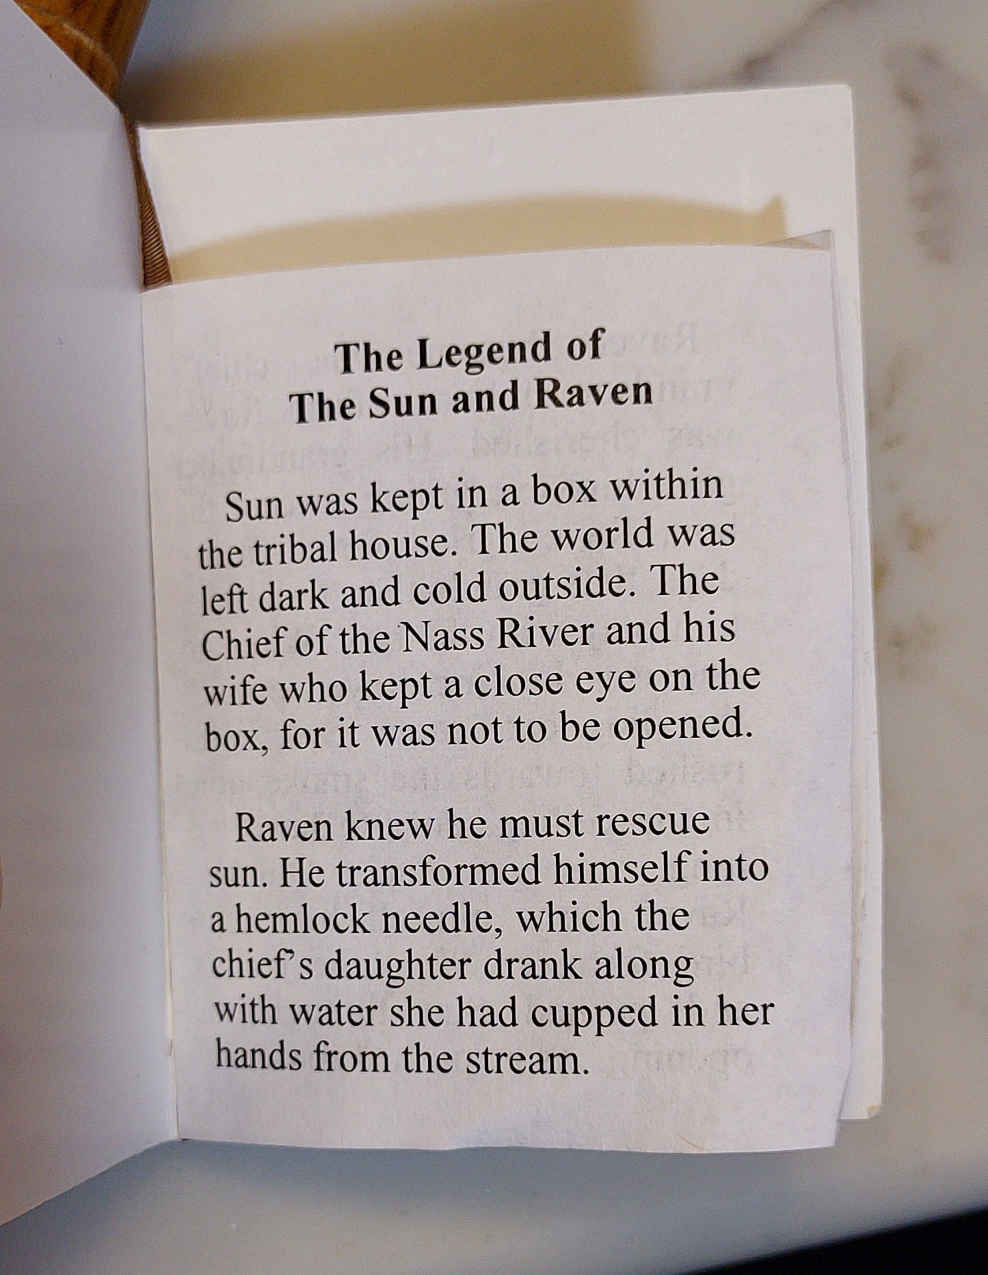 The Legend of
The Sun and Raven
Sun was kept in a box within
the tribal house. The world was
left dark and cold outside. The
Chief of the Nass River and his
wife who kept a close eye on the
box, for it was not to be opened.
Raven knew he must rescue
sun. He transformed himself into
a hemlock needle, which the
chief's daughter drank along
with water she had cupped in her
hands from the stream.